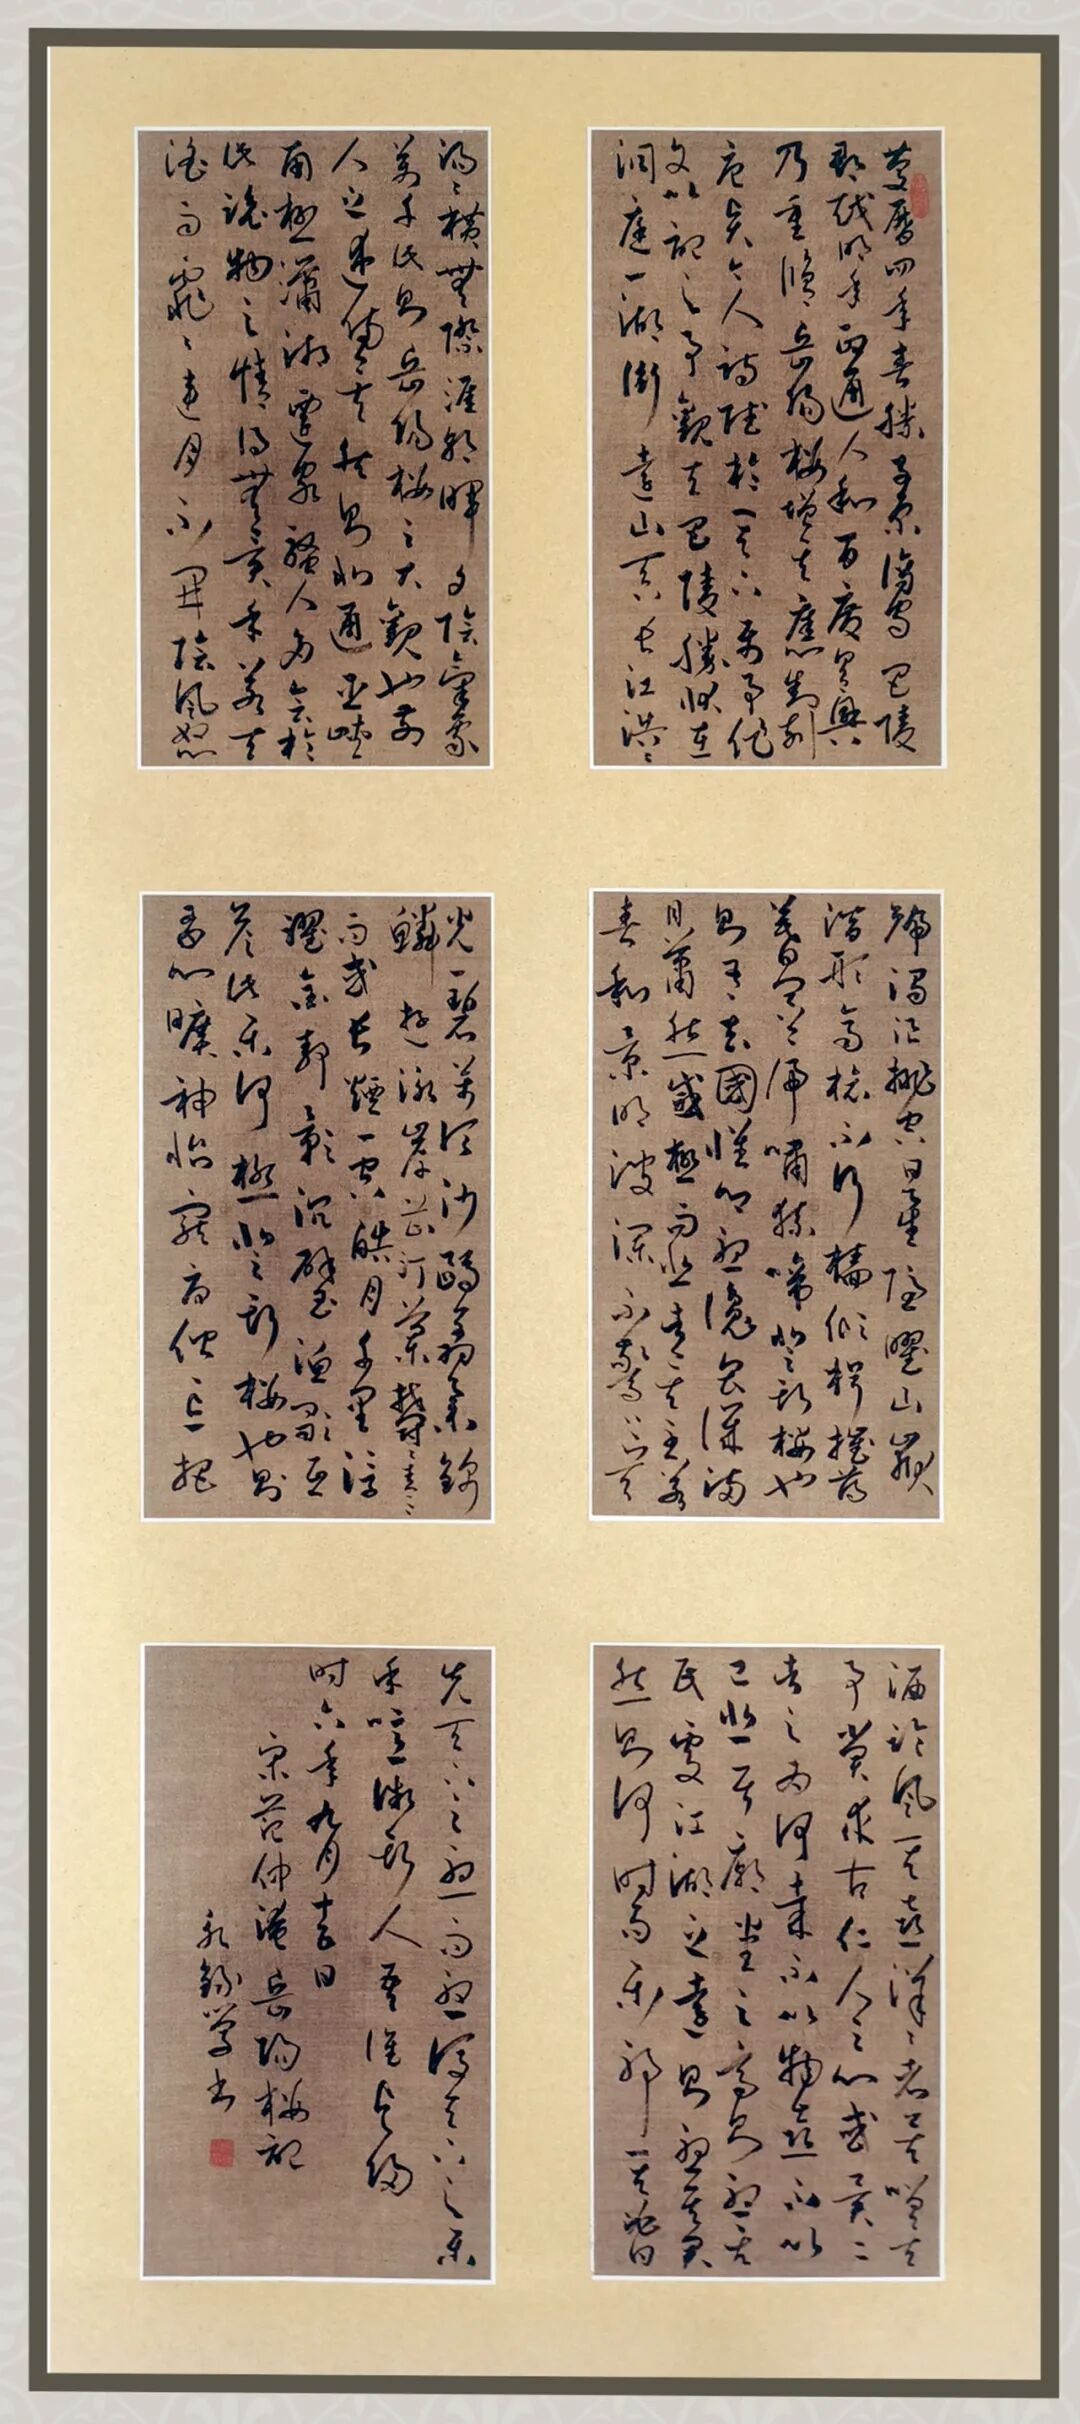 慶曆四年春滕子京謫守巴陵
郡越明年政通人和百廢具興
乃重修岳陽樓增其舊制刻
唐賢今人詩賦於其上屬予作
文以記之予觀夫巴陵勝狀在
洞庭一湖銜遠山吞長江浩浩
湯湯橫無際涯朝暉夕陰氣象
萬千此則岳陽樓之大觀也前
人之述備矣然則北通巫峽
南極瀟湘遷客騷人多會於
此覽物之情得無異乎若夫
淫雨霏霏連月不開陰風怒
號濁浪排空日星隱曜山嶽
潛形商旅不行檣傾楫摧薄
暮冥冥虎嘯猿啼登斯樓也
則有去國懷鄉憂讒畏譏滿
目蕭然感極而悲者矣至若
春和景明波瀾不驚上下天
光一碧萬頃沙鷗翔集錦
鱗游泳岸芷汀蘭鬱鬱青青
而或長煙一空皓月千里浮
躍金靜影沉璧漁歌互
答此樂何極登斯樓也則
有心曠神怡寵辱偕忘把
酒臨風其喜洋洋者矣嗟夫
予嘗求古仁人之心或異二
者之為何哉不以物喜不以
己悲居廟堂之高則憂其
民處江湖之遠則憂其君
然則何時而樂耶其必曰
先天下之憂而憂後天下之樂
乎噫微斯人吾誰與歸
時六年九月十五日
宋范仲淹岳陽樓記
學書